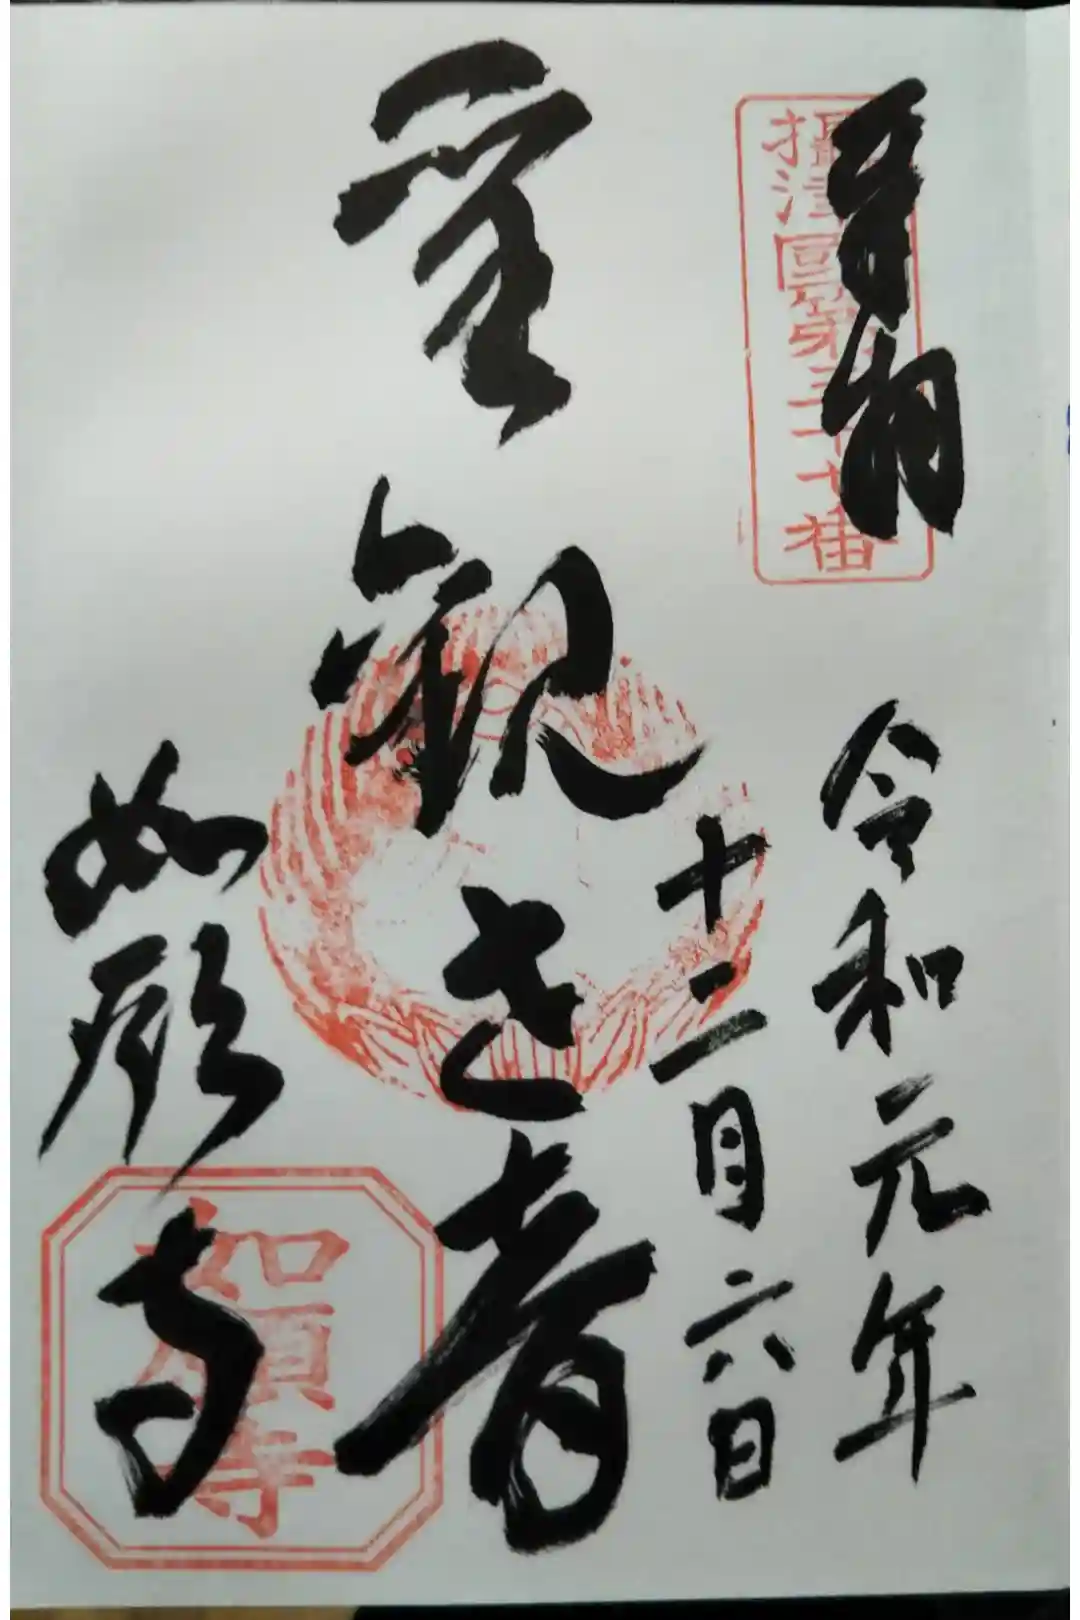 奉拝
攝津國第三十七番
令和元年
十二月六日
聖観世音
如願寺
如願寺